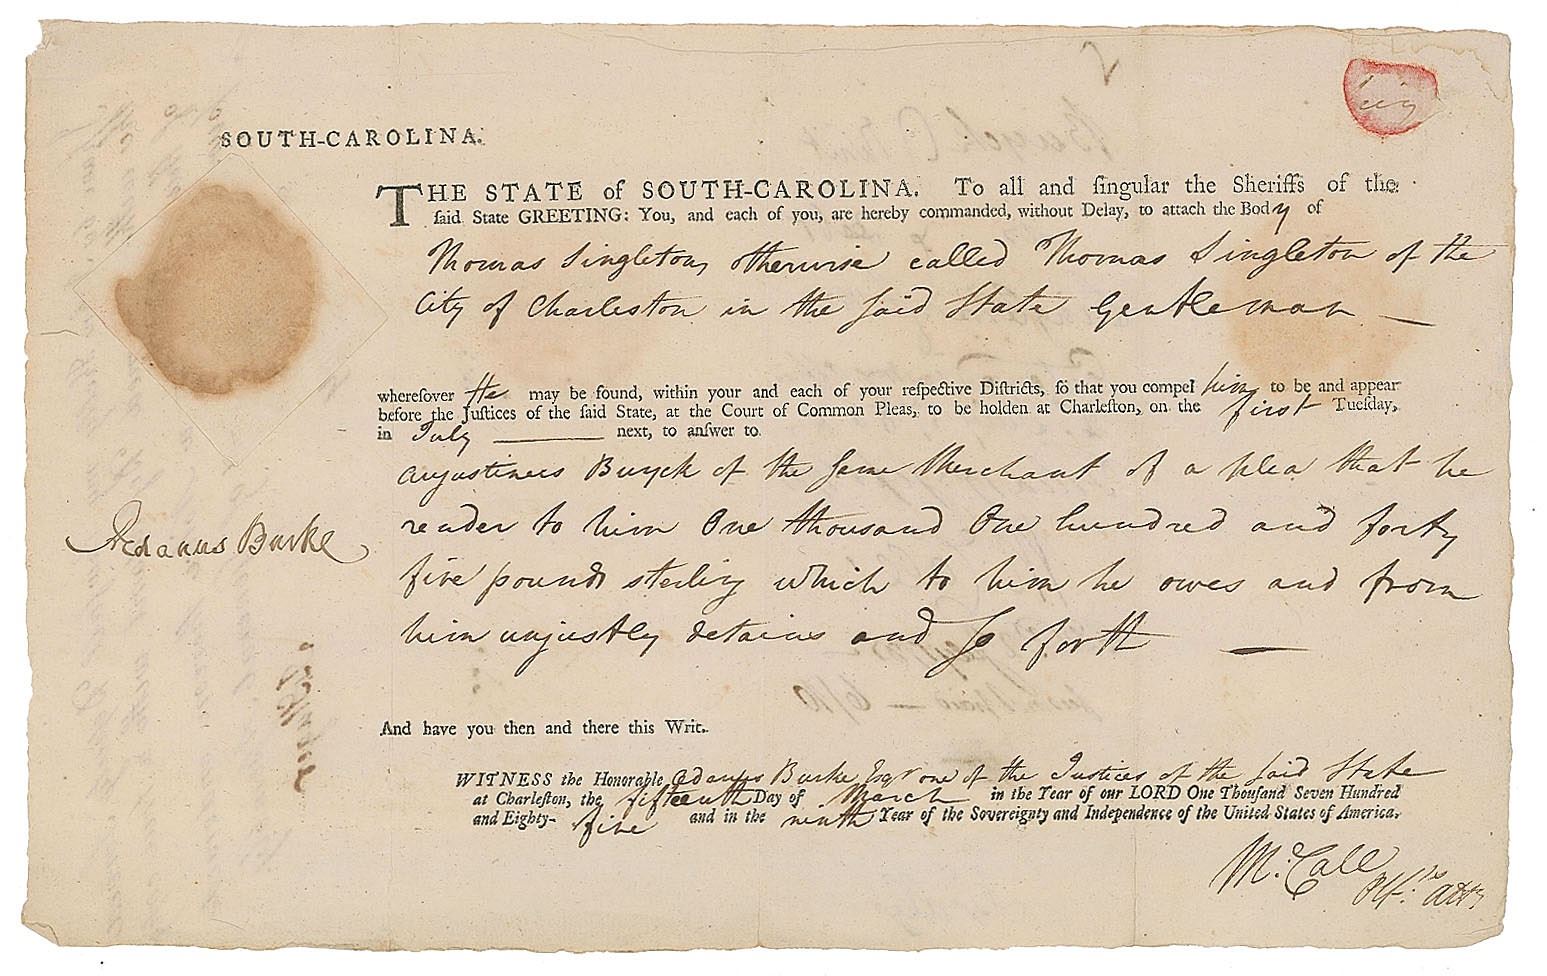 SOUTH-CAROLINA.
THE STATE of SOUTH-CAROLINA. To all and ſingular the Sheriffs of the
ſaid State GREETING: You, and each of you, are hereby commanded, without Delay, to attach the Body of
Thomas Singleton, otherwise called Thomas Singleton of the
City of Charleston in the ſaid State Gentleman —
whereſover He may be found, within your and each of your reſpective Diſtricts, ſo that you compel him to be and appear
before the Juſtices of the ſaid State, at the Court of Common Pleas, to be holden at Charleſton, on the first Tueſday,
in July — next, to anſwer to
Augustinus Buyck of the Same Merchant of a plea that he
render to him One thousand One hundred and forty
five pounds sterling which to him he owes and from
him unjustly detains and So forth —
Aedanus Burke
And have you then and there this Writ.
WITNESS the Honorable Adanus Burke Esqr one of the Justices of the ſaid State
at Charleſton, the fifteenth Day of March in the Year of our LORD One Thouſand Seven Hundred
and Eighty- five and in the ninth Year of the Sovereignty and Independence of the United States of America.
McCall
Plf:ts Atty